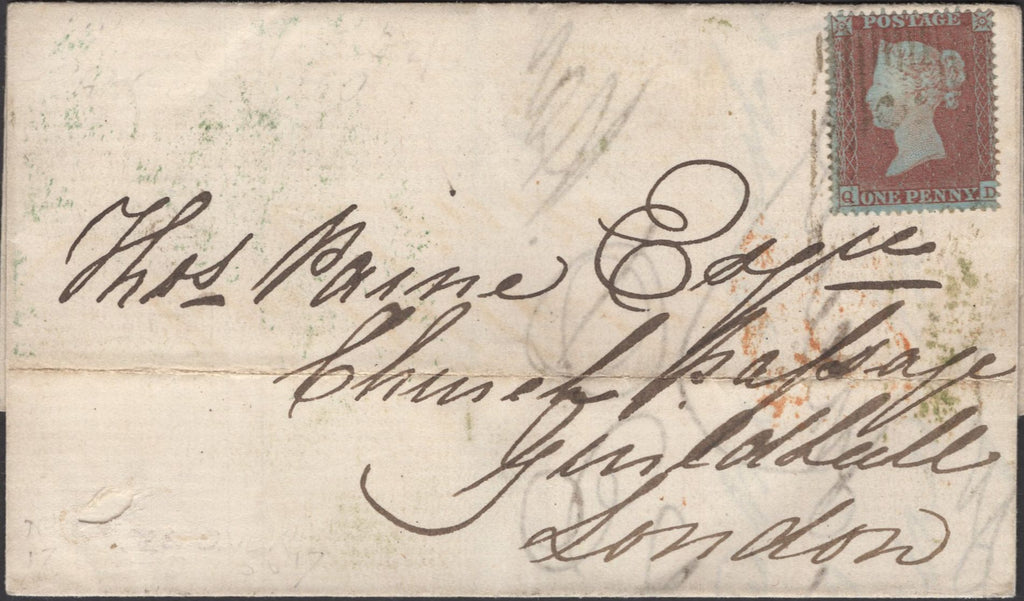 POSTAGE
Q ONE PENNY D
Thos Paine Esqre
Church Passage
Guildhall
London